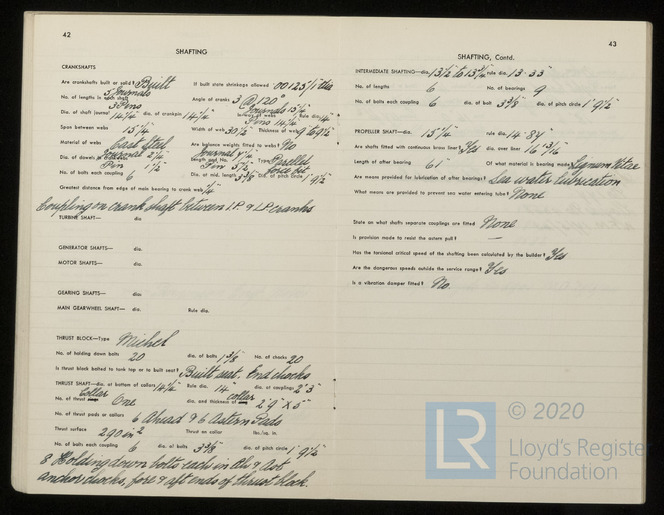 42
SHAFTING
CRANKSHAFTS
Are crankshafts built or solid? Built If built state shrinkage allowed .00125/1" dia
No. of lengths in each shaft 3 Journals 3 Pins Angle of cranks 3 @ 120°
Dia. of shaft journal 14¾" dia. of crankpin 14¾" Journals 15¼" Pins 14¼" Rule dia. 14"
Span between webs 15¼" Width of web 30½" Thickness of web 9" to 9½"
Material of webs Cast Steel Are balance weights fitted to webs? No
Dia. of dowels Journal 2¼" Pin 1½" Length and No. Journal Pin Type Parallel force fit
No. of bolts each coupling 6 Dia. at mid. length 3⅜" Dia. of pitch circle 1' 9½"
Greatest distance from edge of main bearing to crank web ¼"
Coupling on crank shaft between I.P & L.P cranks
TURBINE SHAFT— dia.
GENERATOR SHAFTS— dia.
MOTOR SHAFTS— dia.
GEARING SHAFTS— dia.
MAIN GEARWHEEL SHAFT— dia. Rule dia.
THRUST BLOCK—Type Michel
No. of holding down bolts 20 dia. of bolts 1⅜" No. of chocks 20
Is thrust block bolted to tank top or to built seat? Built seat. End chocks
THRUST SHAFT—dia. at bottom of collars 14¼" Rule dia. 14" dia. of couplings 2' 3"
No. of thrust collar One dia. and thickness of collar 2' 9" x 5"
No. of thrust pads or collars 6 Ahead & 6 Astern Pads
Thrust surface 290 in² Thrust on collar lbs./sq. in.
No. of bolts each coupling 6 dia. of bolts 3⅜" dia. of pitch circle 1' 9½"
8 Holding down bolts each in Ah & Ast
anchor chocks, fore & aft ends of thrust block.
43
SHAFTING, Contd.
INTERMEDIATE SHAFTING—dia. 13½" to 13¾" rule dia. 13.33"
No. of lengths 6 No. of bearings 9
No. of bolts each coupling 6 dia. of bolt 3⅜" dia. of pitch circle 1' 9½"
PROPELLER SHAFT—dia. 15½" rule dia. 14.84"
Are shafts fitted with continuous brass liner? Yes dia. over liner
Length of after bearing 61" Of what material is bearing made Lignum Vitae
Are means provided for lubrication of after bearings? Sea water lubrication
What means are provided to prevent sea water entering tube? None
State on what shafts separate couplings are fitted None
Is provision made to resist the astern pull? —
Has the torsional critical speed of the shafting been calculated by the builder? Yes
Are the dangerous speeds outside the service range? Yes
Is a vibration damper fitted? No
LR © 2020
Lloyd's Register
Foundation